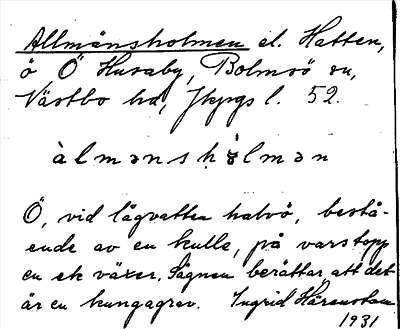 Allmänsholmen el. Hatten,
ö Ö Husaby, Bolmsö sn,
Västbo hd, Jkpgs l. 52.
àlmənshɷ̀lmən
Ö, vid lågvatten halvö, bestå-
ende av en kulle, på vars topp
en ek växer. Sägnen berättar att det
är en kungagrav. Ingrid Härenstam
1931